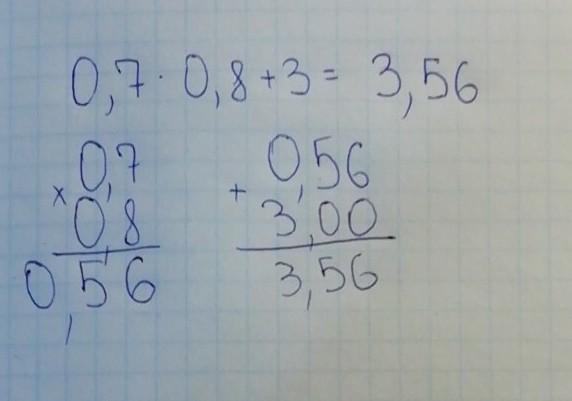 0,7 · 0,8 + 3 = 3,56
0,7
× 0,8
0,56
0,56
+ 3,00
3,56